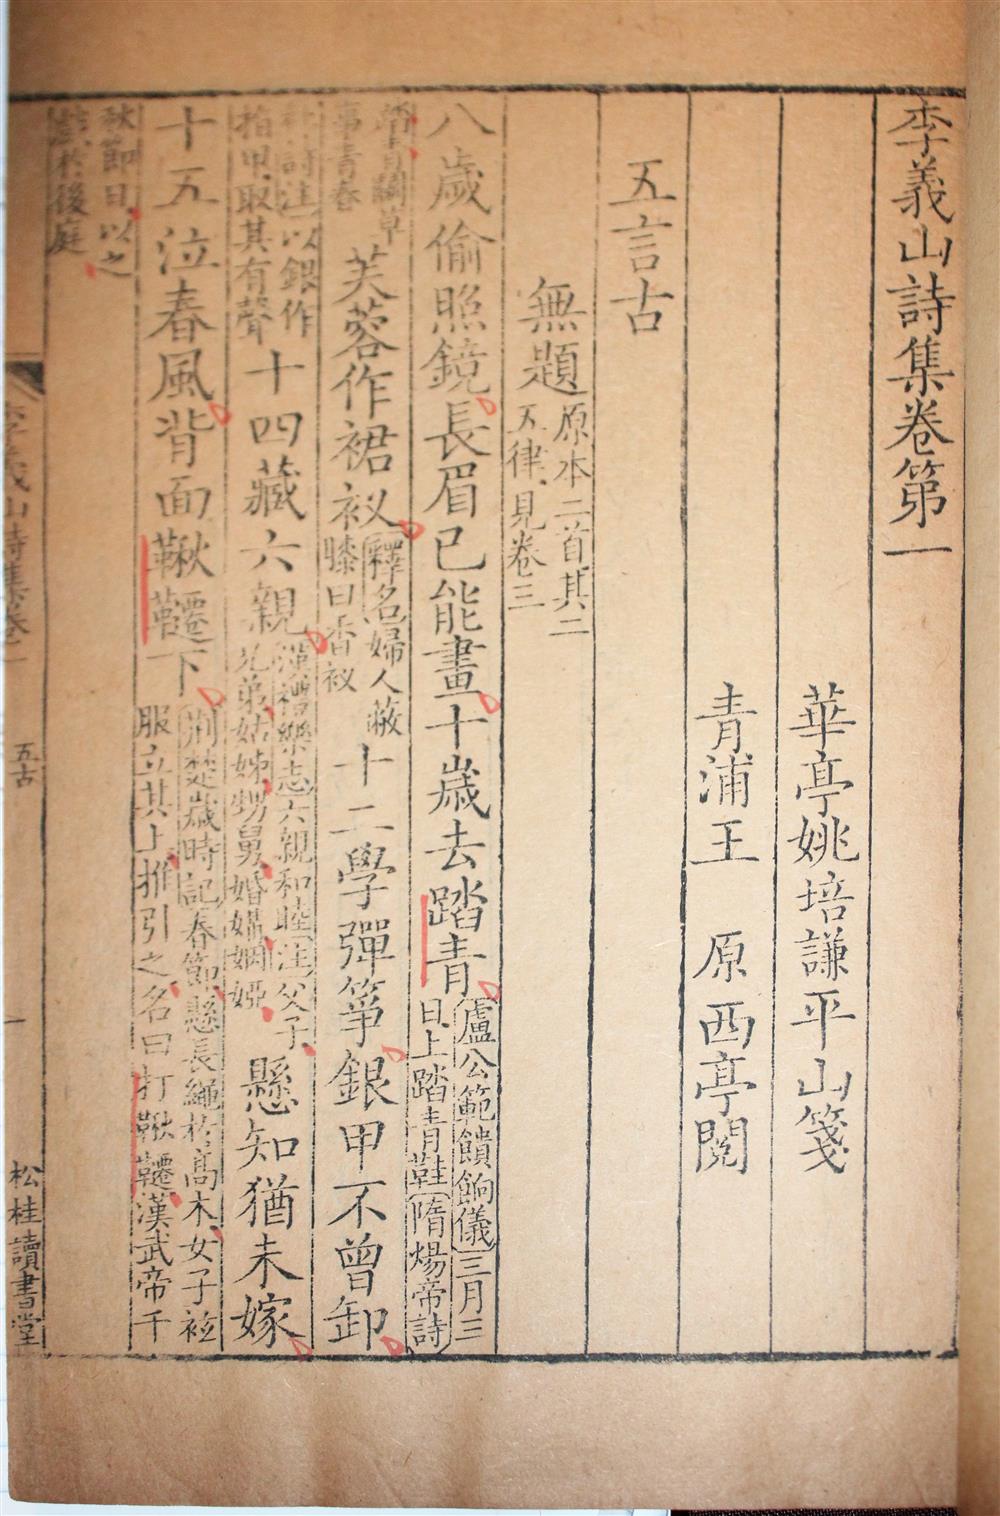 李義山詩集卷第一
華亭姚培謙平山箋
青浦王　原西亭閱
五言古
無題原本二首其二五律見卷三
八歲偷照鏡長眉已能畫十歲去踏青盧公範饋餉儀三月三日上踏青鞋隋煬帝詩
踏青鬬草事青春芙蓉作裙衩釋名婦人蔽膝曰香衩十二學彈箏銀甲不曾卸
杜詩注以銀作指甲取其有聲十四藏六親漢禮樂志六親和睦注父子兄弟姑姊甥舅婚媾姻婭懸知猶未嫁
十五泣春風背面鞦韆下荆楚歲時記春節懸長繩於高木女子袨服立其上推引之名曰打鞦韆漢武帝千
秋節日以之戲於後庭
李義山詩集卷一
五古
一
松桂讀書堂